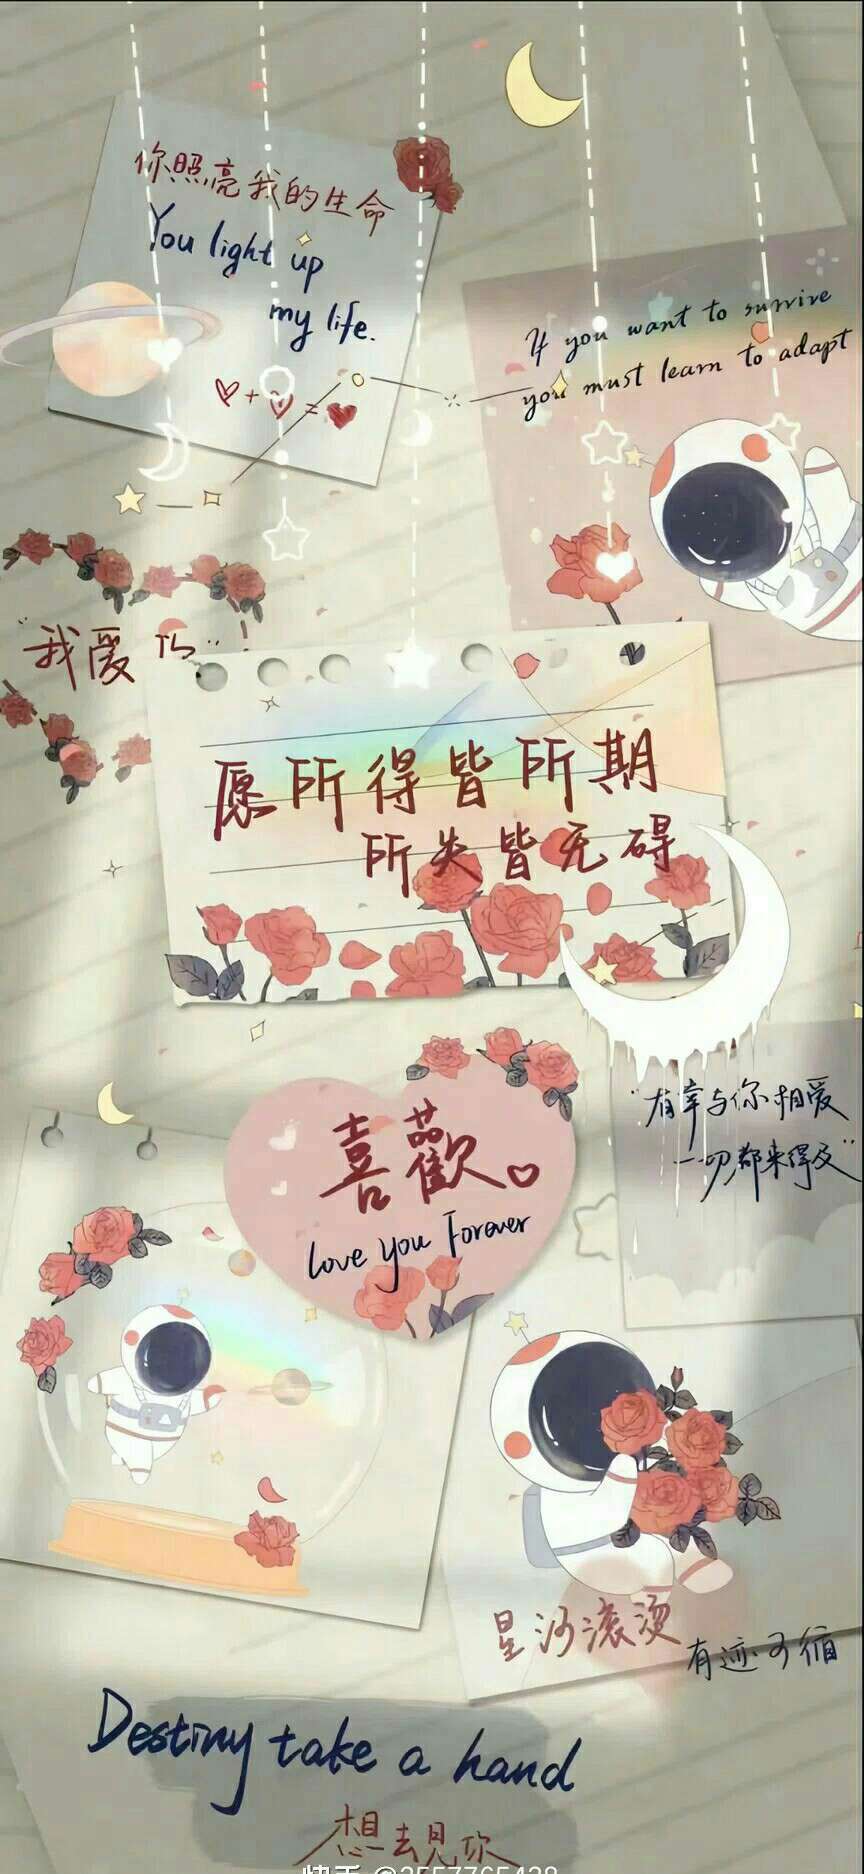 你照亮我的生命
You light up
my life.
If you want to survive
you must learn to adapt
"我爱
愿所得皆所期
所失皆无碍
"有幸与你相爱
一切都来得及"
喜歡
love you Forever
星河滚烫
有迹可循
Destiny take a hand
想去见你
快手 @3557765438